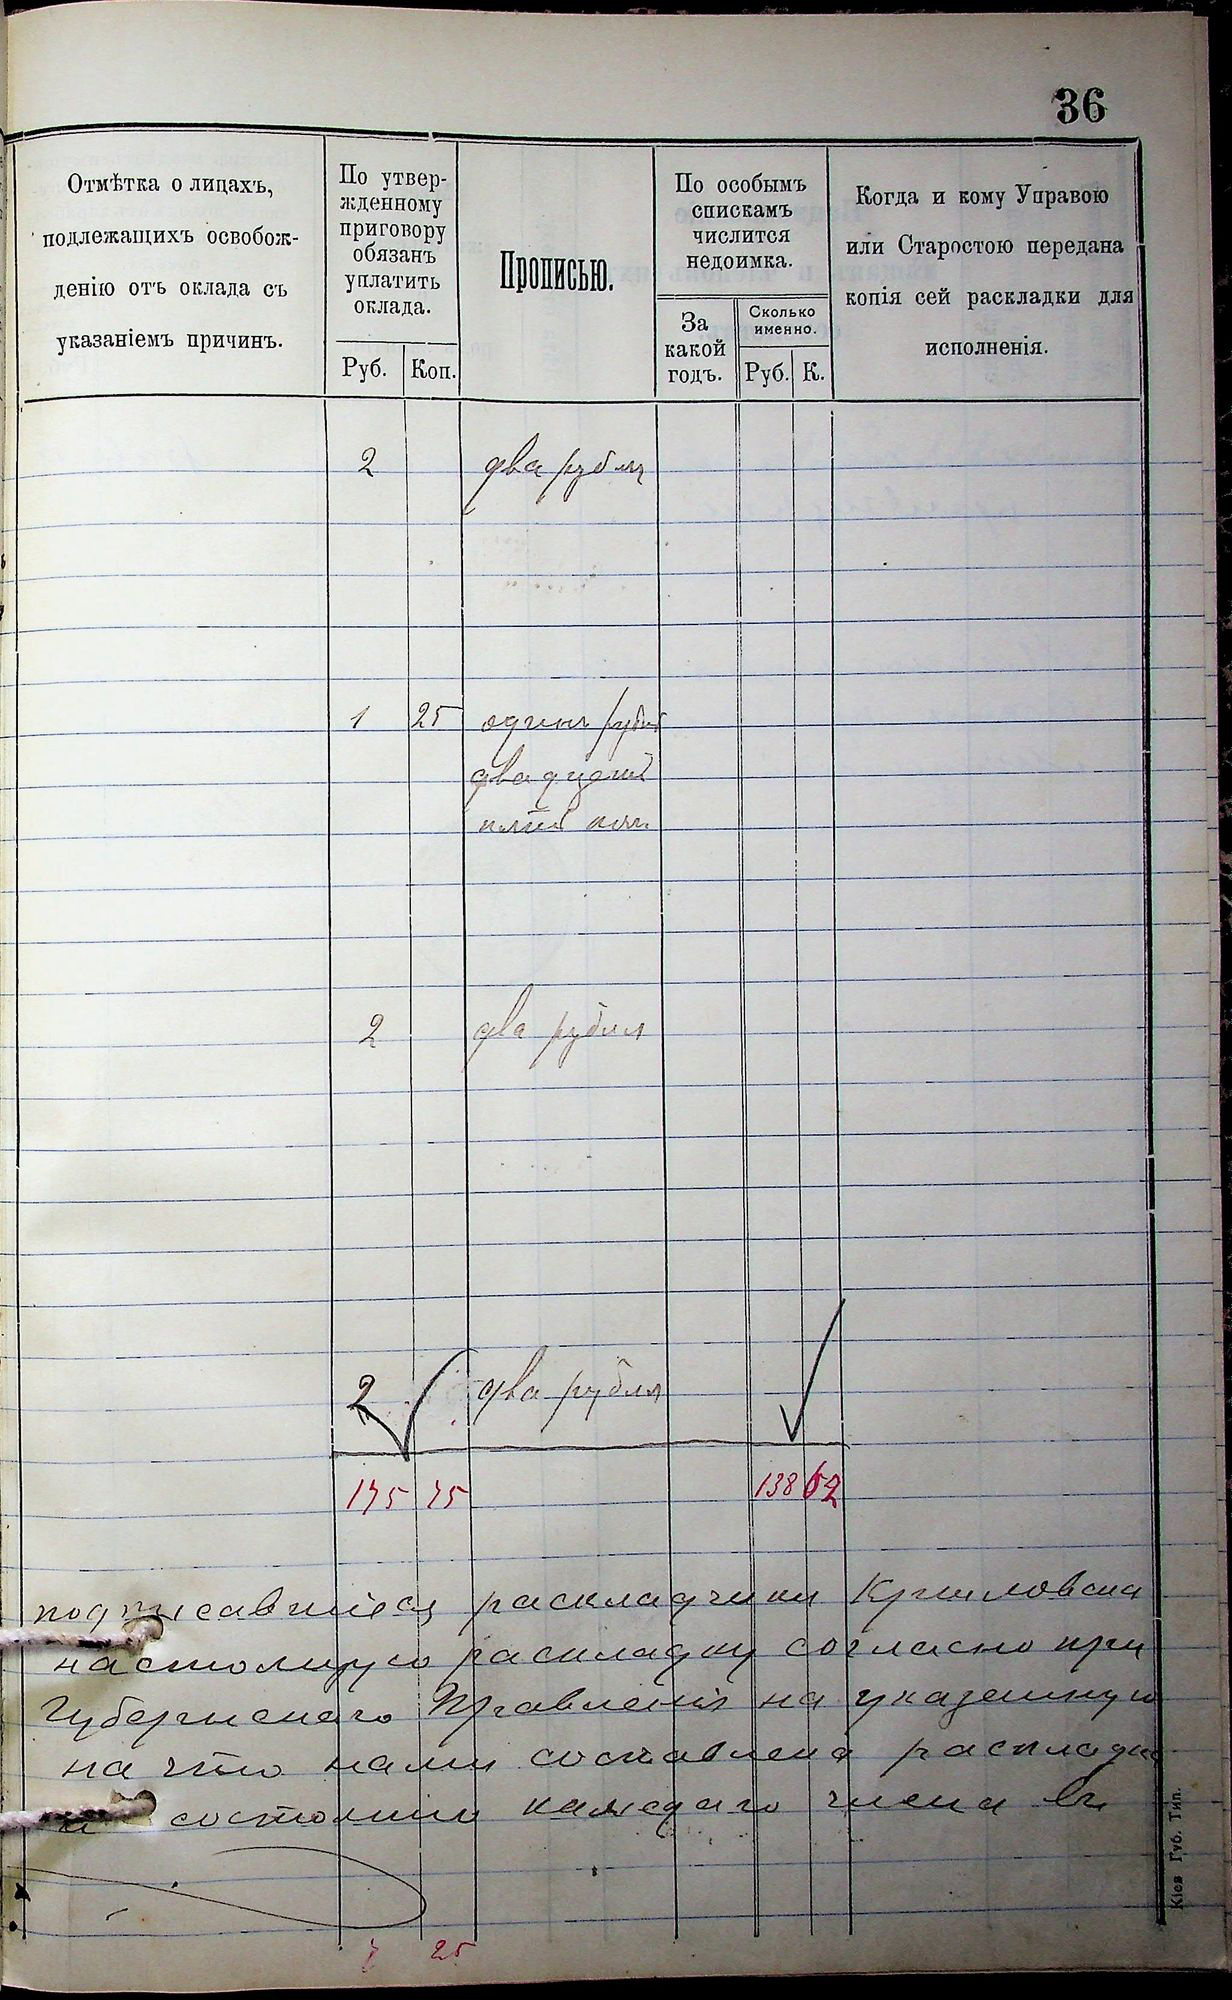 36
Отмѣтка о лицахъ,
подлежащихъ освобож-
денію отъ оклада съ
указаніемъ причинъ.
По утвер-
жденному
приговору
обязанъ
уплатить
оклада.
Руб. Коп.
Прописью.
По особымъ
спискамъ
числится
недоимка.
За
какой
годъ.
Сколько
именно.
Руб. К.
Когда и кому Управою
или Старостою передана
копія сей раскладки для
исполненія.
2 два рубля
1 25 одинъ рубль
двадцать
пять коп.
2 два рубля
2 два рубля
175 75 138 62
подписавшіеся раскладчики Крыловска
настоящую раскладку согласно при
Губернскаго Правленія на указанную
на что нами составлена раскладка
и состоянію каждаго члена въ
7 25
Кіев Губ. Тип.